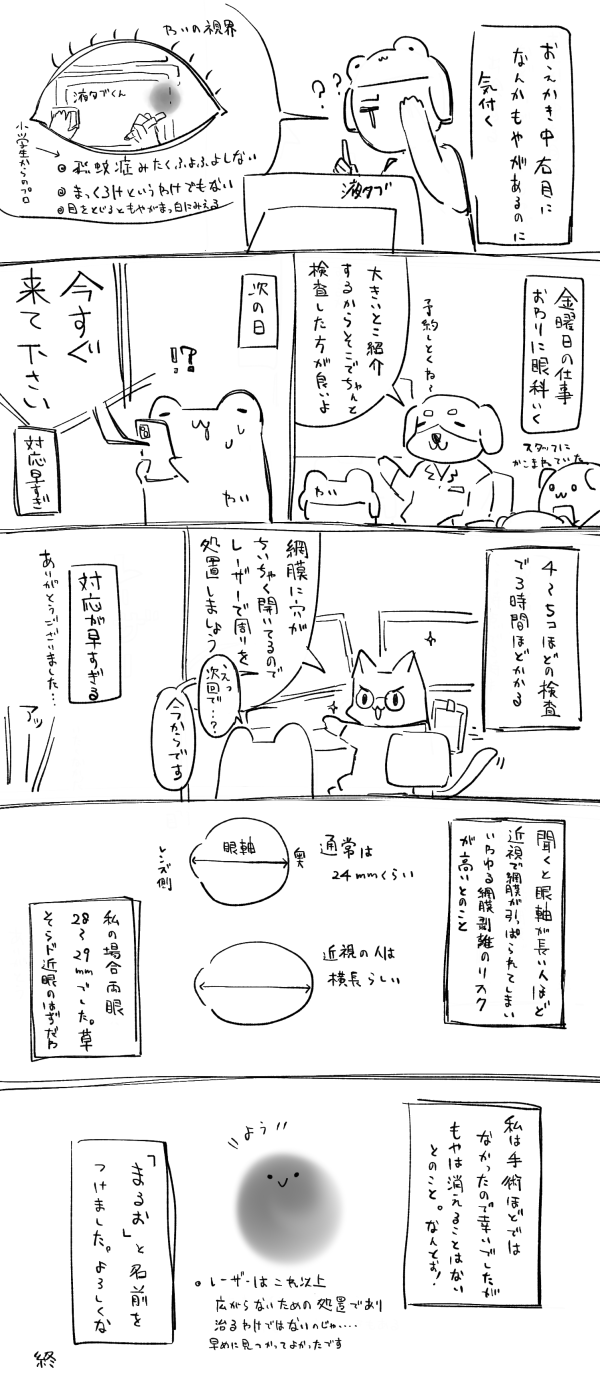 おえかき中右目に
なんかもやがあるのに
気付く
??
液タブ
やいの視界
液タブくん
小学生からのプロ
飛蚊症みたくふよふよしない
まっくろけというわけでもない
目をとじるともやがまっ白にみえる
金曜日の仕事
おわりに眼科いく
スタッフに
かこまれていた
予約しとくね〜
大きいとこ紹介
するからそこでちゃんと
検査した方が良いよ
やい
次の日
!?
やい
今すぐ
来て下さい
対応早すぎ
4〜5コほどの検査
で3時間ほどかかる
網膜に穴が
ちいちゃく開いてるので
レーザーで周りを
処置しましょう
えっ
次回で…?
今からです
対応が早すぎる
ありがとうございました…
アッ
聞くと眼軸が長い人ほど
近視で網膜が引っぱられてしまい
いわゆる網膜剥離のリスク
が高いとのこと
通常は
24mmくらい
眼軸
奥
レンズ側
近視の人は
横長らしい
私の場合両眼
28〜29mmでした。草
そらド近眼のはずだわ
私は手術ほどでは
なかったので幸いでしたが
もやは消えることはない
とのこと。なんとお!
よう
レーザーはこれ以上
広がらないための処置であり
治るわけではないのじゃ‥‥
早めに見つかってよかったです
「まるお」と名前を
つけました。よろしくな
終